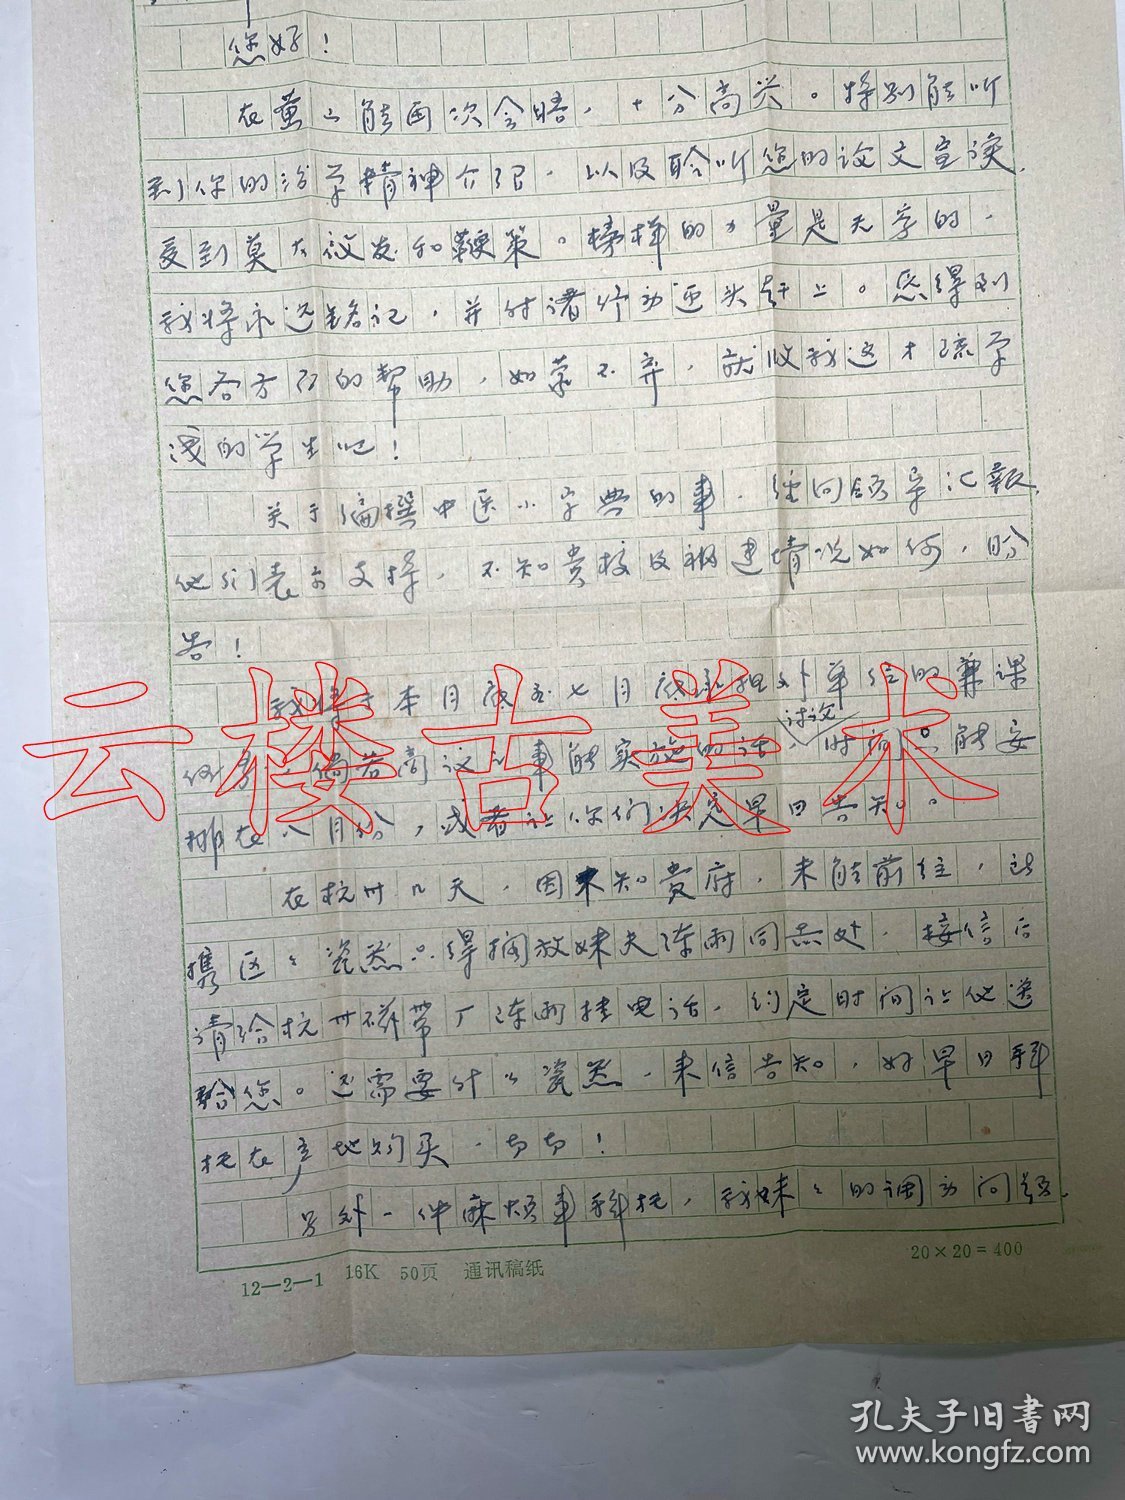 您好！
在黄山能两次会晤，十分高兴。特别能听
到你的治学精神介绍，以及聆听您的论文宣读，
受到莫大议发和鞭策。榜样的力量是无穷的，
我将永远铭记，并付诸行动迎头赶上。恳得到
您各方面的帮助，如蒙不弃，就收我这才疏学
浅的学生吧！
关于编撰中医小字典的事，经向领导汇报，
他们表示支持，不知贵校及福建情况如何，盼
告！
我将于本月底至七月底承担外单位的兼课
任务，倘若商议的事能实施的话，讨论时间只能安
排在八月份，或者让你们决定早日告知。
在杭州几天，因未知贵府，未能前往，
携区区瓷器只得搁放妹夫陈雨同志处，接信后
请给杭州磁带厂陈雨挂电话，约定时间让他送
给您。还需要什么瓷器，来信告知，好早日拜
托在产地购买，切切！
另外一件麻烦事拜托，我妹妹的调动问题，
12—2—1 16K 50页 通讯稿纸
20×20＝400
云楼古美术
孔夫子旧书网
www.kongfz.com